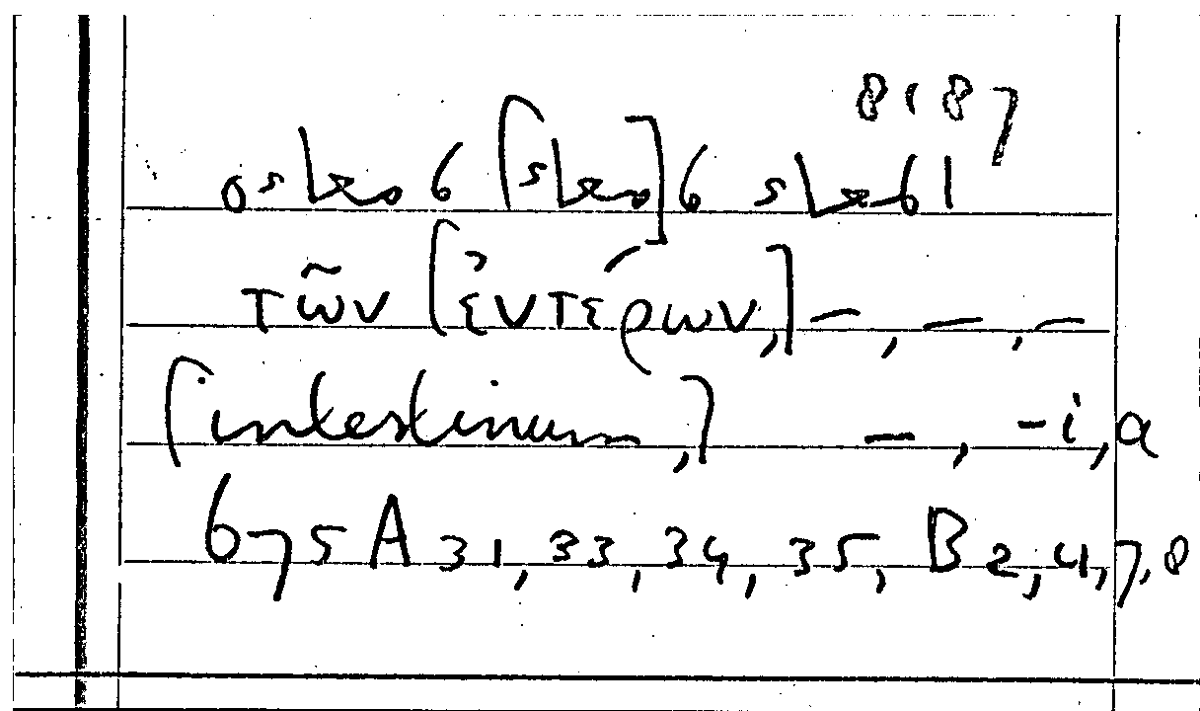 8187
τῶν [ἐντέρων,] –, –, –
[intestinum,] –, -i, a
675 A 31, 33, 34, 35, B 2, 4, 7, 8